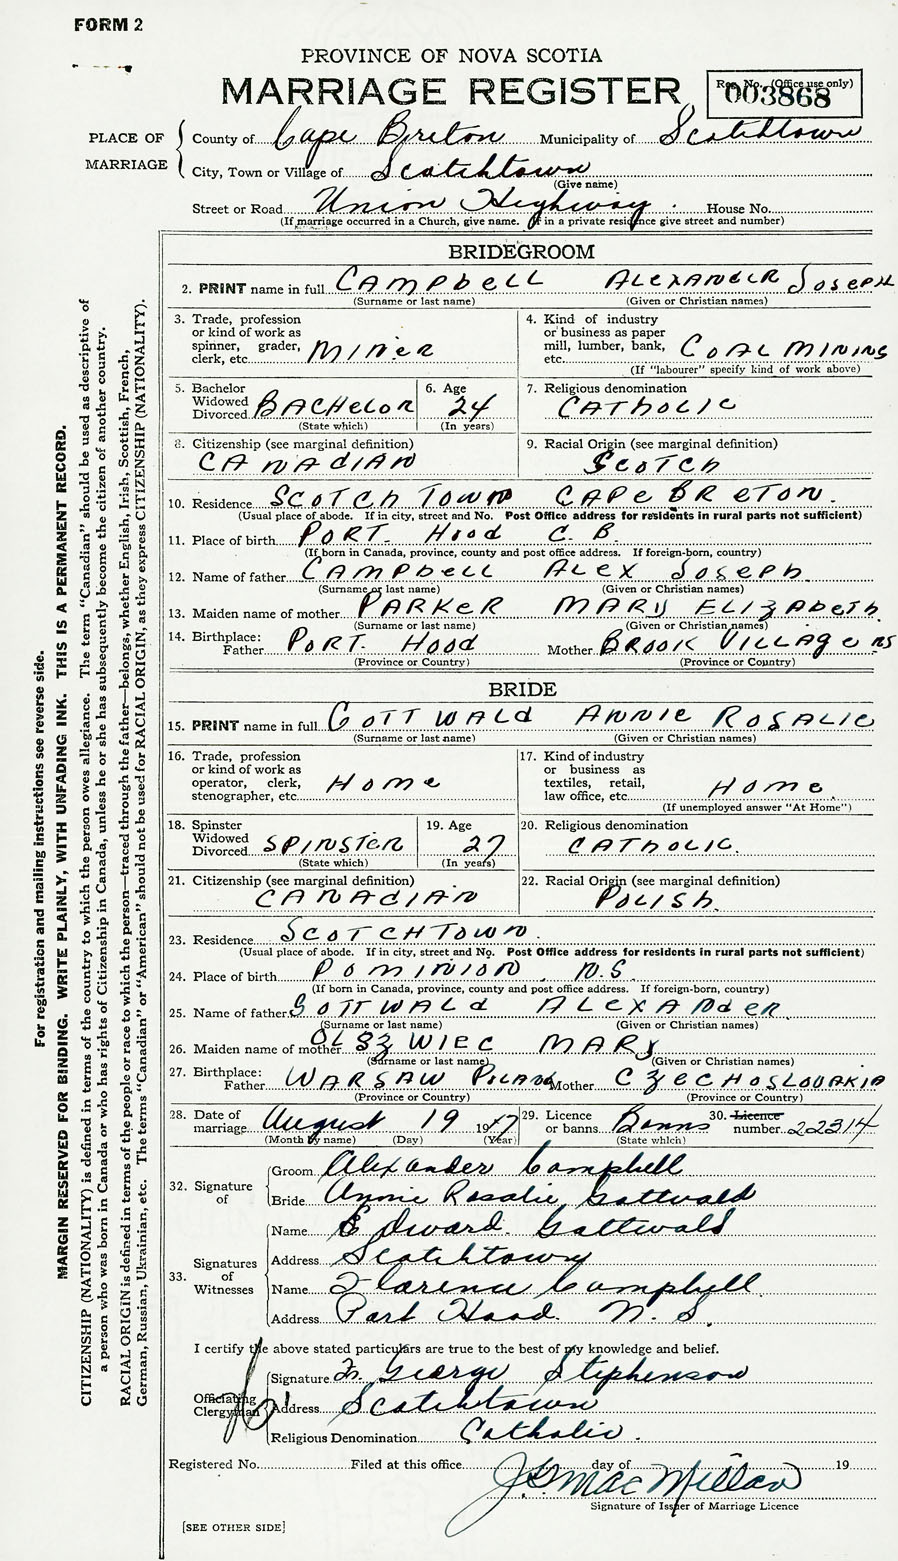 FORM 2
PROVINCE OF NOVA SCOTIA
MARRIAGE REGISTER
Reg. No. (Office use only)
003868
PLACE OF MARRIAGE
County of Cape Breton Municipality of Scotchtown
City, Town or Village of Scotchtown
(Give name)
Street or Road Union Highway. House No.
(If marriage occurred in a Church, give name. If in a private residence give street and number)
BRIDEGROOM
2. PRINT name in full CAMPbELL ALEXANDER JOSEPH
(Surname or last name) (Given or Christian names)
3. Trade, profession or kind of work as spinner, grader, clerk, etc. MINER
4. Kind of industry or business as paper mill, lumber, bank, etc. COAL MINING
(If "labourer" specify kind of work above)
5. Bachelor Widowed Divorced BACHELOR
(State which)
6. Age 24
(In years)
7. Religious denomination CATHOLIC
8. Citizenship (see marginal definition) CANADIAN
9. Racial Origin (see marginal definition) SCOTCH
10. Residence SCOTCH TOWN CAPE BRETON.
(Usual place of abode. If in city, street and No. Post Office address for residents in rural parts not sufficient)
11. Place of birth PORT. HOOD C. B.
(If born in Canada, province, county and post office address. If foreign-born, country)
12. Name of father CAMPbELL ALEX JOSEPH.
(Surname or last name) (Given or Christian names)
13. Maiden name of mother PARKER MARY ELIZABETH.
(Surname or last name) (Given or Christian names)
14. Birthplace:
Father PORT. HOOD Mother BROOK VILLAGE NS
(Province or Country) (Province or Country)
BRIDE
15. PRINT name in full GOTTWALD ANNIE ROSALIE
(Surname or last name) (Given or Christian names)
16. Trade, profession or kind of work as operator, clerk, stenographer, etc. HOME
17. Kind of industry or business as textiles, retail, law office, etc. HOME.
(If unemployed answer "At Home")
18. Spinster Widowed Divorced SPINSTER
(State which)
19. Age 27
(In years)
20. Religious denomination CATHOLIC.
21. Citizenship (see marginal definition) CANADIAN
22. Racial Origin (see marginal definition) POLISH.
23. Residence SCOTCHTOWN.
(Usual place of abode. If in city, street and No. Post Office address for residents in rural parts not sufficient)
24. Place of birth DOMINION, N.S
(If born in Canada, province, county and post office address. If foreign-born, country)
25. Name of father GOTTWALD ALEXANDER.
(Surname or last name) (Given or Christian names)
26. Maiden name of mother OLSZWIEC MARY
(Surname or last name) (Given or Christian names)
27. Birthplace:
Father WARSAW POLAND Mother CZECHOSLOVAKIA
(Province or Country) (Province or Country)
28. Date of marriage August 19 1947
(Month by name) (Day) (Year)
29. Licence or banns Banns
(State which)
30. Licence number 22314
32. Signature of
Groom Alexander Campbell
Bride Annie Rosalie Gottwald
33. Signatures of Witnesses
Name Edward. Gottwald
Address Scotchtown
Name Florence Campbell.
Address Port Hood. N. S.
I certify the above stated particulars are true to the best of my knowledge and belief.
Officiating Clergyman
Signature George Stephenson
Address Scotchtown
Religious Denomination Catholic.
Registered No. Filed at this office day of 19
J. MacMillan
Signature of Issuer of Marriage Licence
[SEE OTHER SIDE]
For registration and mailing instructions see reverse side.
MARGIN RESERVED FOR BINDING. WRITE PLAINLY, WITH UNFADING INK. THIS IS A PERMANENT RECORD.
CITIZENSHIP (NATIONALITY) is defined in terms of the country to which the person owes allegiance. The term "Canadian" should be used as descriptive of
a person who was born in Canada or who has rights of Citizenship in Canada, unless he or she has subsequently become the citizen of another country.
RACIAL ORIGIN is defined in terms of the people or race to which the person—traced through the father—belongs, whether English, Irish, Scottish, French,
German, Russian, Ukrainian, etc. The terms "Canadian" or "American" should not be used for RACIAL ORIGIN, as they express CITIZENSHIP (NATIONALITY).